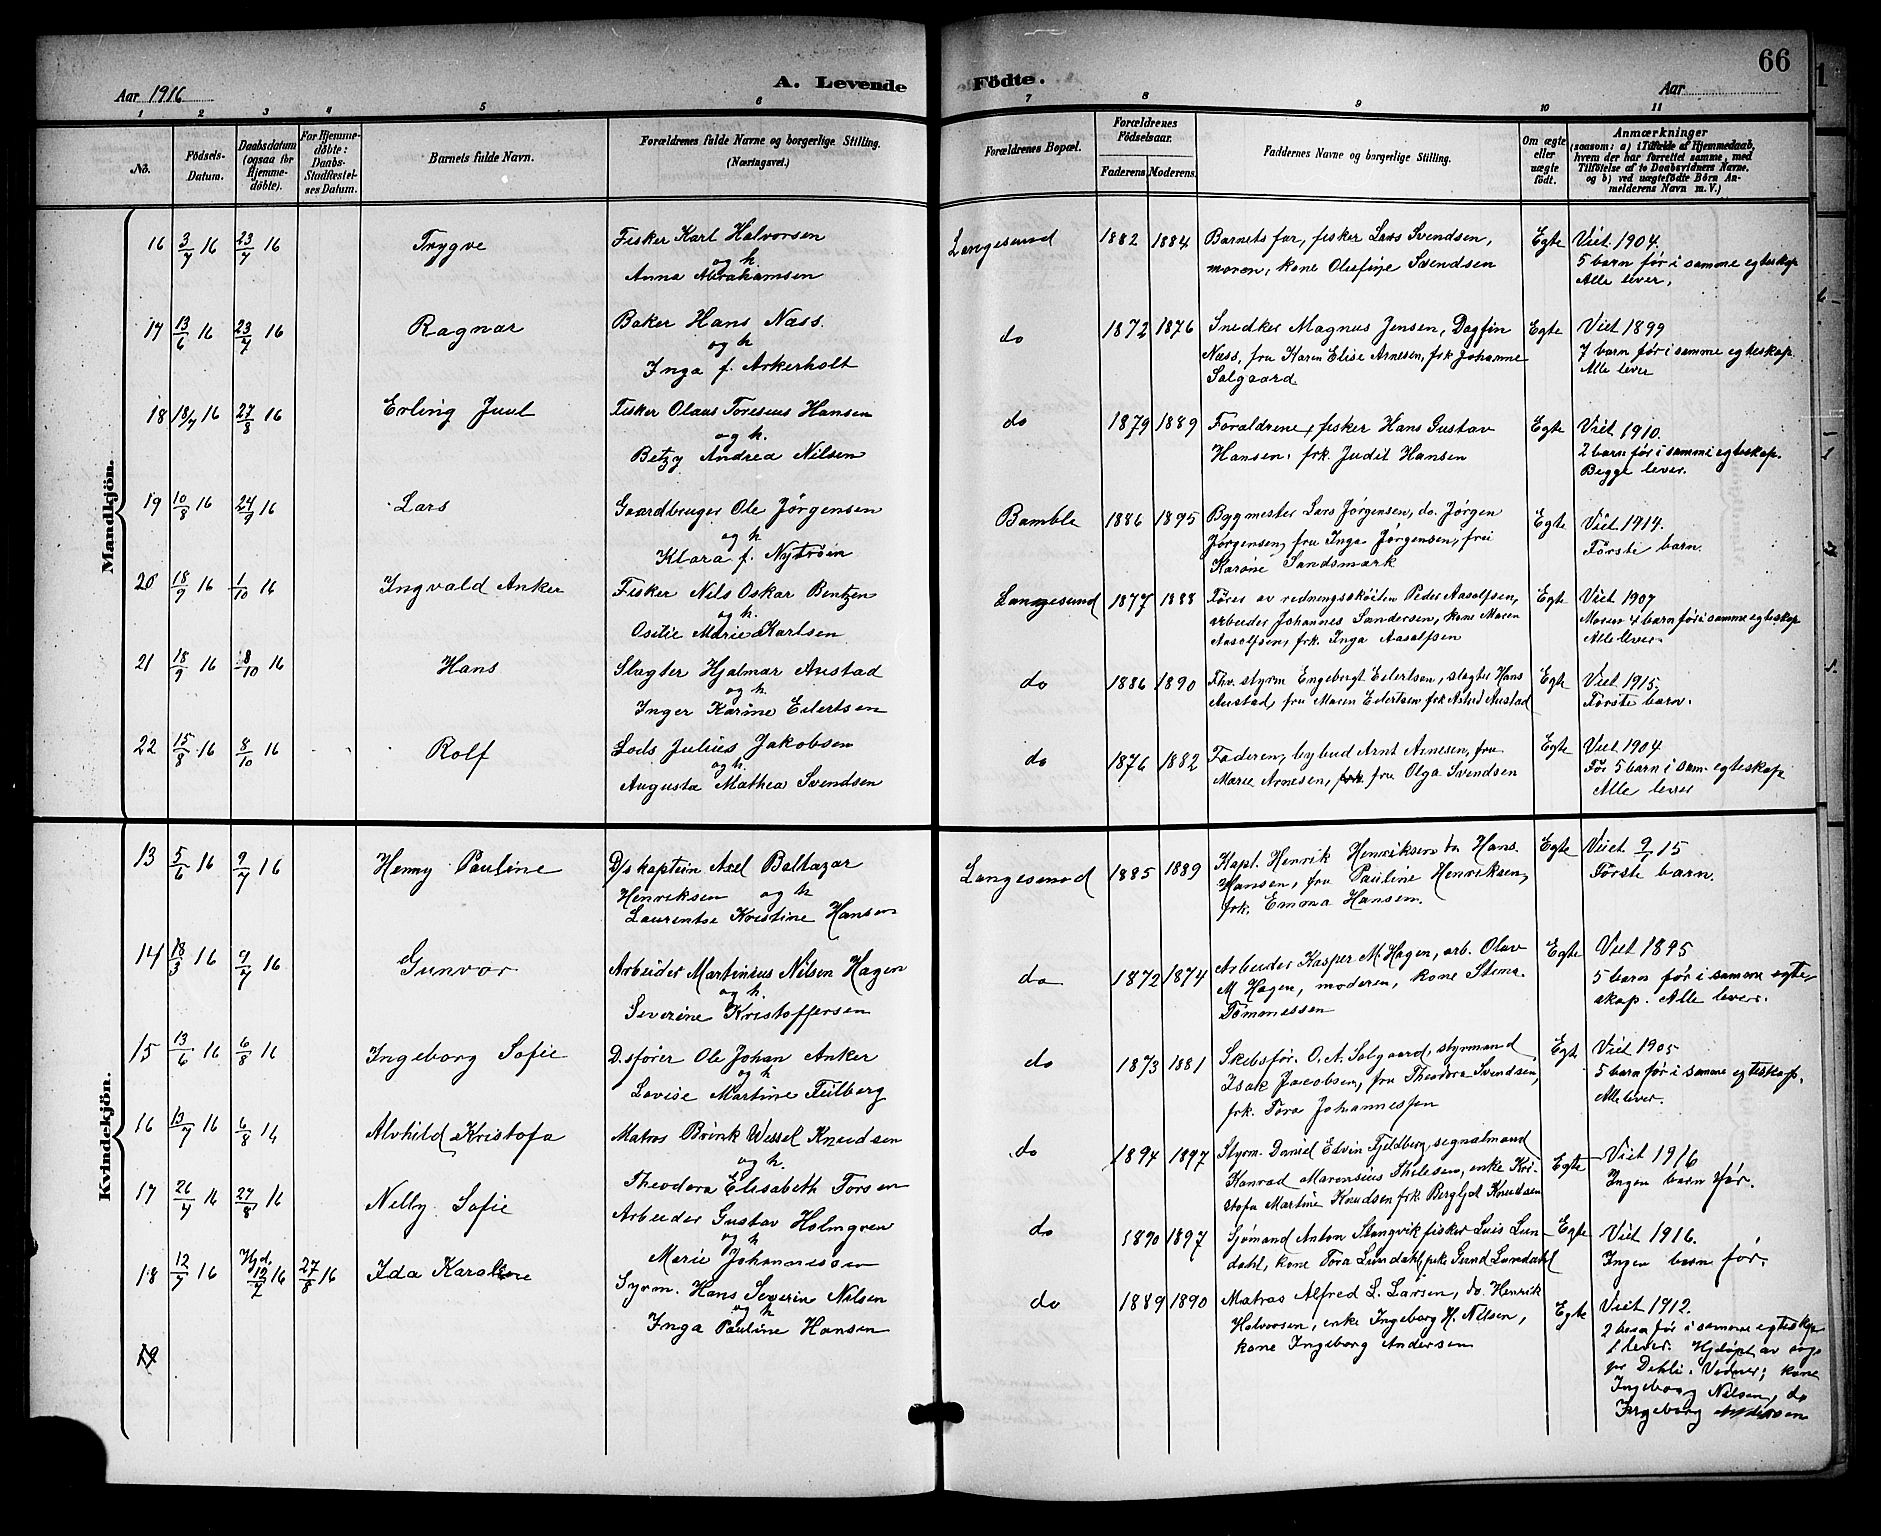 66
Aar 1916
A. Levende Födte.
Aar
1 2 3 4 5 6 7 8 9 10 11
No.
Födsels-Datum.
Daabsdatum (ogsaa for Hjemme-döbte).
For Hjemme-döbte: Daabs-Stadfæstel-ses Datum.
Barnets fulde Navn.
Forældrenes fulde Navne og borgerlige Stilling. (Næringsvei.)
Forældrenes Bopæl.
Forældrenes Födselsaar.
Faderens. Moderens.
Faddernes Navne og borgerlige Stilling.
Om ægte eller uægte født.
Anmærkninger
(saasom: a) i Tilfælde af Hjemmedaab, hvem der har forrettet samme, med Tilföielse af to Daabsvidners Navne, og b) ved uægtefödte Börn An-melderens Navn m. V.)
Mandkjön.
16 3/7 16 23/7 16 Trygve Fisker Karl Halvorsen Langesund 1882 1884 Barnets far, fisker Lars Svendsen, Egte Viet 1904.
og h. moren, kone Olefine Svendsen 5 barn før i samme egteskap
Anna Abrahamsen Alle lever.
17 13/6 16 23/7 16 Ragnar Baker Hans Næss. do 1872 1876 Snedker Magnus Jensen, Dagfin Egte Viet 1899
og h Næss, fru Karen Elise Arnesen, frk Johanne 7 barn før i samme egteskap.
Inga f. Arkerholt Salgaard Alle lever
18 18/7 16 27/8 16 Erling Juul Fisker Olaus Toresius Hansen do 1879 1889 Forældrene, fisker Hans Gustav Egte Viet 1910.
og h. Hansen, frk. Judit Hansen 2 barn før i samme egteskap.
Betzy Andrea Nilsen Begge lever.
19 10/8 16 24/9 16 Lars Gaardbruger Ole Jørgensen Bamble 1886 1895 Bygmester Lars Jørgensen, do. Jørgen Egte Viet 1914.
og h Jørgensen, fru Inga Jørgensen, frøi Første barn.
Klara f. Nystrøm Karone Sandsmark
20 18/9 16 1/10 16 Ingvald Anker Fisker Nils Oskar Bentzen Langesund 1877 1888 Fører av redningsskøiten Peder Aasolfsen, Egte Viet 1907
og h. arbeider Johannes Sandersen, kone Maren 4 barn før i samme egteskap
Ositie Marie Karlsen Aasolfsen, frk. Inga Aasolfsen Alle lever.
21 18/9 16 8/10 16 Hans Slagter Hjalmar Austad do 1886 1890 Fhv. styrm Engebregt Eilertsen, slagter Hans Egte Viet 1915.
og h Austad, fru Maren Eilertsen frk Astrid Austad Første barn.
Inger Karine Eilertsen
22 15/8 16 8/10 16 Rolf Lods Julius Jakobsen do 1876 1882 Faderen, bybud Arnt Arnesen, fru Egte Viet 1904
og h. Marie Arnesen, fru Olga Svendsen Før 5 barn i sam egteskap
Augusta Mathea Svendsen Alle lever
Kvindekjön.
13 5/6 16 9/7 16 Henny Pauline D/s kaptein Axel Baltazar Langesund 1885 1889 Kapt. Henrik Henriksen do Hans Egte Viet 9/7 15
Henriksen og h Hansen, fru Pauline Henriksen, Første barn.
Laurentse Kristine Hansen frk. Emma Hansen.
14 18/3 16 9/7 16 Gunvor Arbeider Martinius Nilsen Hagen do 1872 1874 Arbeider Kasper M. Hagen, arb. Olav Egte Viet 1895
og h. M Hagen, moderen, kone Stina 5 barn før i samme egte-
Severine Kristoffersen Tømmessen skap. Alle lever.
15 13/6 16 6/8 16 Ingeborg Sofie D.sfører Ole Johan Anker do 1873 1881 Skibsfør. O. A. Salgaard, styrmand Egte Viet 1905
og h Isak Jacobsen, fru Theodora Svendsen, 5 barn før i samme egteskap.
Lovise Martine Feilberg frk. Tora Johannessen Alle lever.
16 13/7 16 6/8 16 Alvhild Kristofa Matros Brink Wessel Knudsen do 1894 1897 Styrm. Daniel Edvin Fjeldberg, segnalmand Egte Viet 1916
og h. Konrad Marensius Thilesen, enke Kri- Ingen barn før.
Theodora Elisabeth Torsen stofa Martine Knudsen frk Bergljot Knudsen
17 26/7 16 27/8 16 Nelly Sofie Arbeider Gustav Holmgren do 1890 1897 Sjømand Anton Stangvik fisker Luis Lun- Egte Viet 1916.
og h dahl, kone Tora Lundahl, frk Gund Lundahl Ingen barn før.
Marie Johannessen
18 12/7 16 Hjd. 12/7 16 27/8 16 Ida Karoline Syrm. Hans Severin Nilsen do 1889 1890 Matros Alfred L. Larsen, do. Henrik Egte Viet 1912.
og h Halvorsen, enke Ingeborg H. Nilsen, 2 barn før i samme egteskap
Inga Pauline Hansen kone Ingeborg Andersen 1 lever. Hjdøpt av sogn
pr Dehli. Vidner; kone
Ingeborg Nilsen, do
Ingeborg Andersen
19